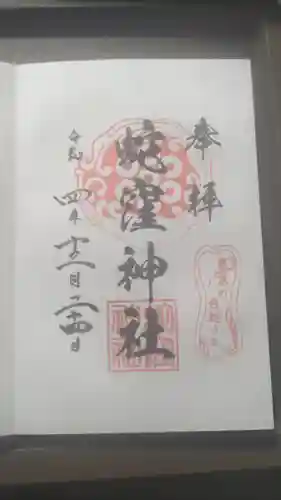 奉拝
蛇窪神社
令和四年十二月二十四日